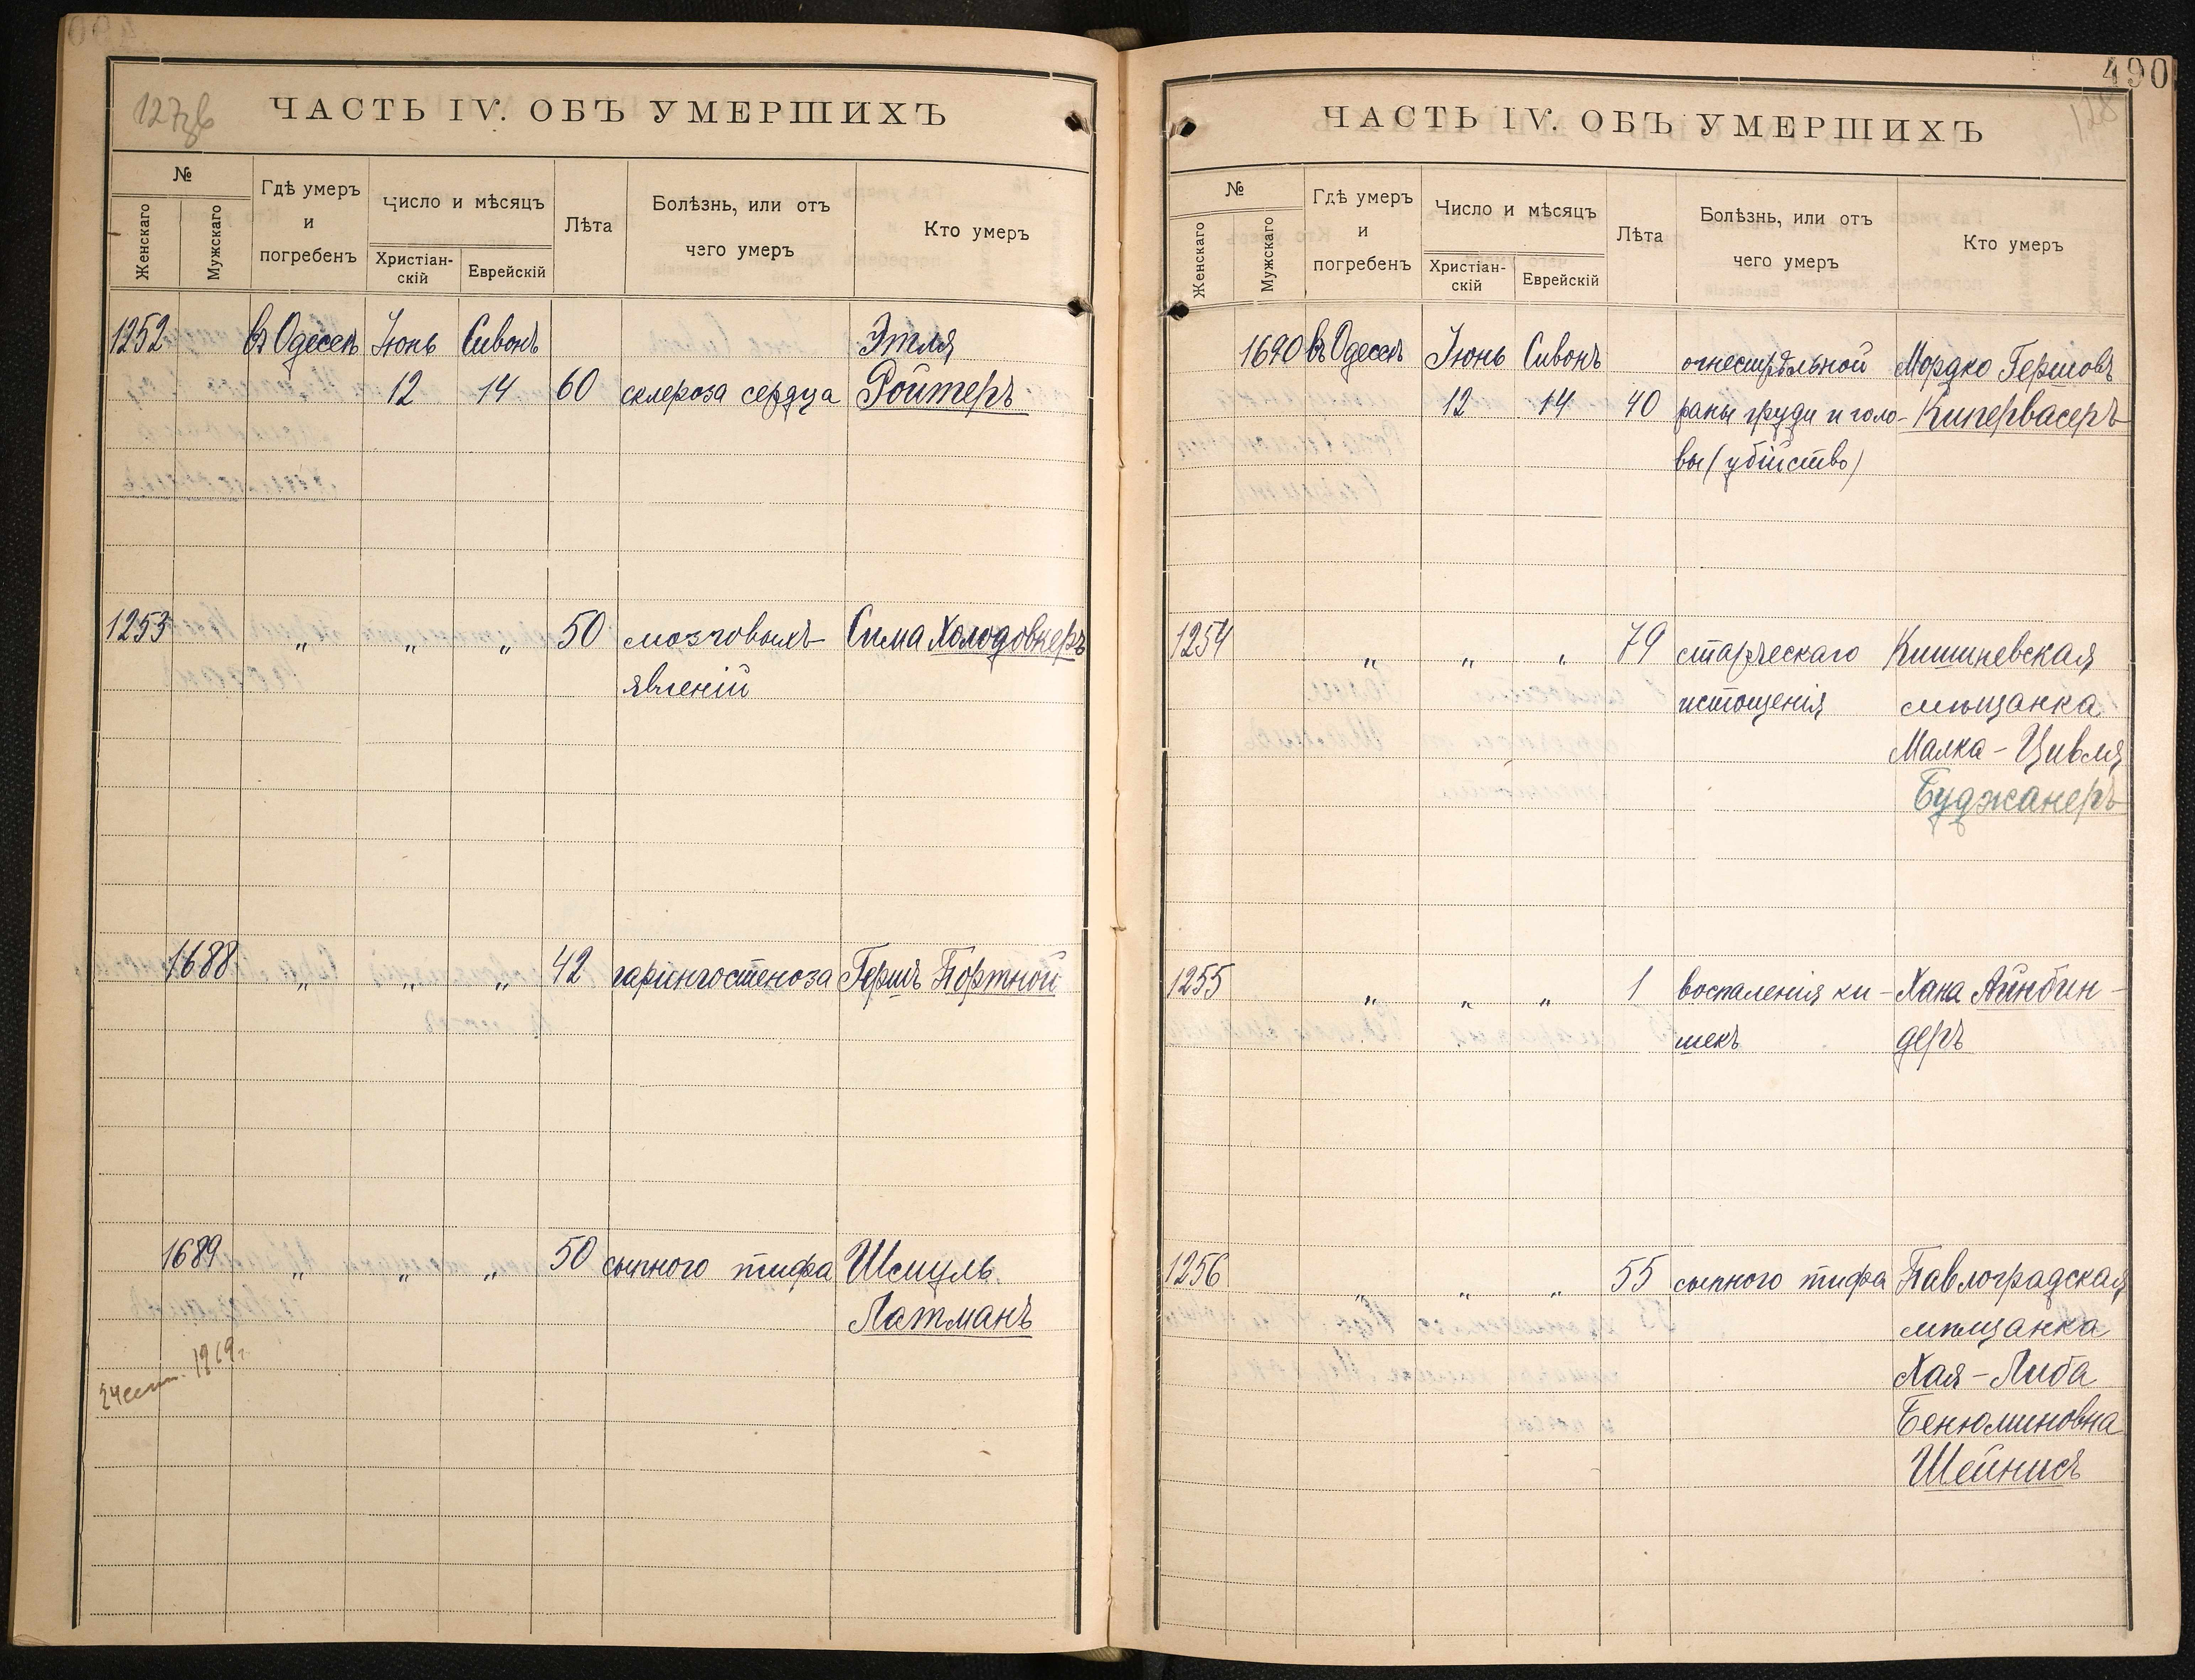 127об
ЧАСТЬ IV. ОБЪ УМЕРШИХЪ
№
Женскаго
Мужскаго
Гдѣ умеръ
и
погребенъ
Число и мѣсяцъ
Христіан-
скій
Еврейскій
Лѣта
Болѣзнь, или отъ
чего умеръ
Кто умеръ
1252 въ Одессѣ Іюнь Сивонъ Этля
12 14 60 склероза сердца Ройтеръ
1253 „ „ „ 50 мозговыхъ Сима Холодовнеръ
явленій
1688 „ „ „ 42 ларингостеноза Гершъ Портной
1689 „ „ „ 50 сыпного тифа Шмуль
Латманъ
24 сент. 1969г.
490
128
ЧАСТЬ IV. ОБЪ УМЕРШИХЪ
№
Женскаго
Мужскаго
Гдѣ умеръ
и
погребенъ
Число и мѣсяцъ
Христіан-
скій
Еврейскій
Лѣта
Болѣзнь, или отъ
чего умеръ
Кто умеръ
1690 въ Одессѣ Іюнь Сивонъ огнестрѣльной Мордко Гершовъ
12 14 40 раны груди и голо- Кипервасеръ
вы (убійство)
1254 „ „ „ 79 старческаго Кишиневская
истощенія мѣщанка
Малка-Цивля
Буджанеръ
1255 „ „ „ 1 воспаленія ки- Хана Айнбин-
шекъ деръ
1256 „ „ „ 55 сыпного тифа Павлоградская
мѣщанка
Хая-Либа
Бенюминовна
Шейнисъ